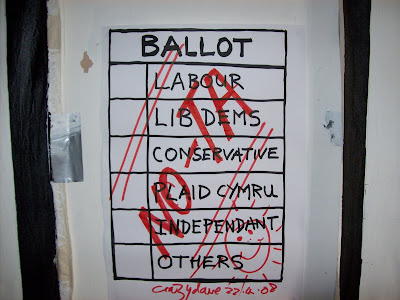 BALLOT
LABOUR
LIB DEMS
CONSERVATIVE
PLAID CYMRU
INDEPENDANT
OTHERS
NO-TA
crazydave